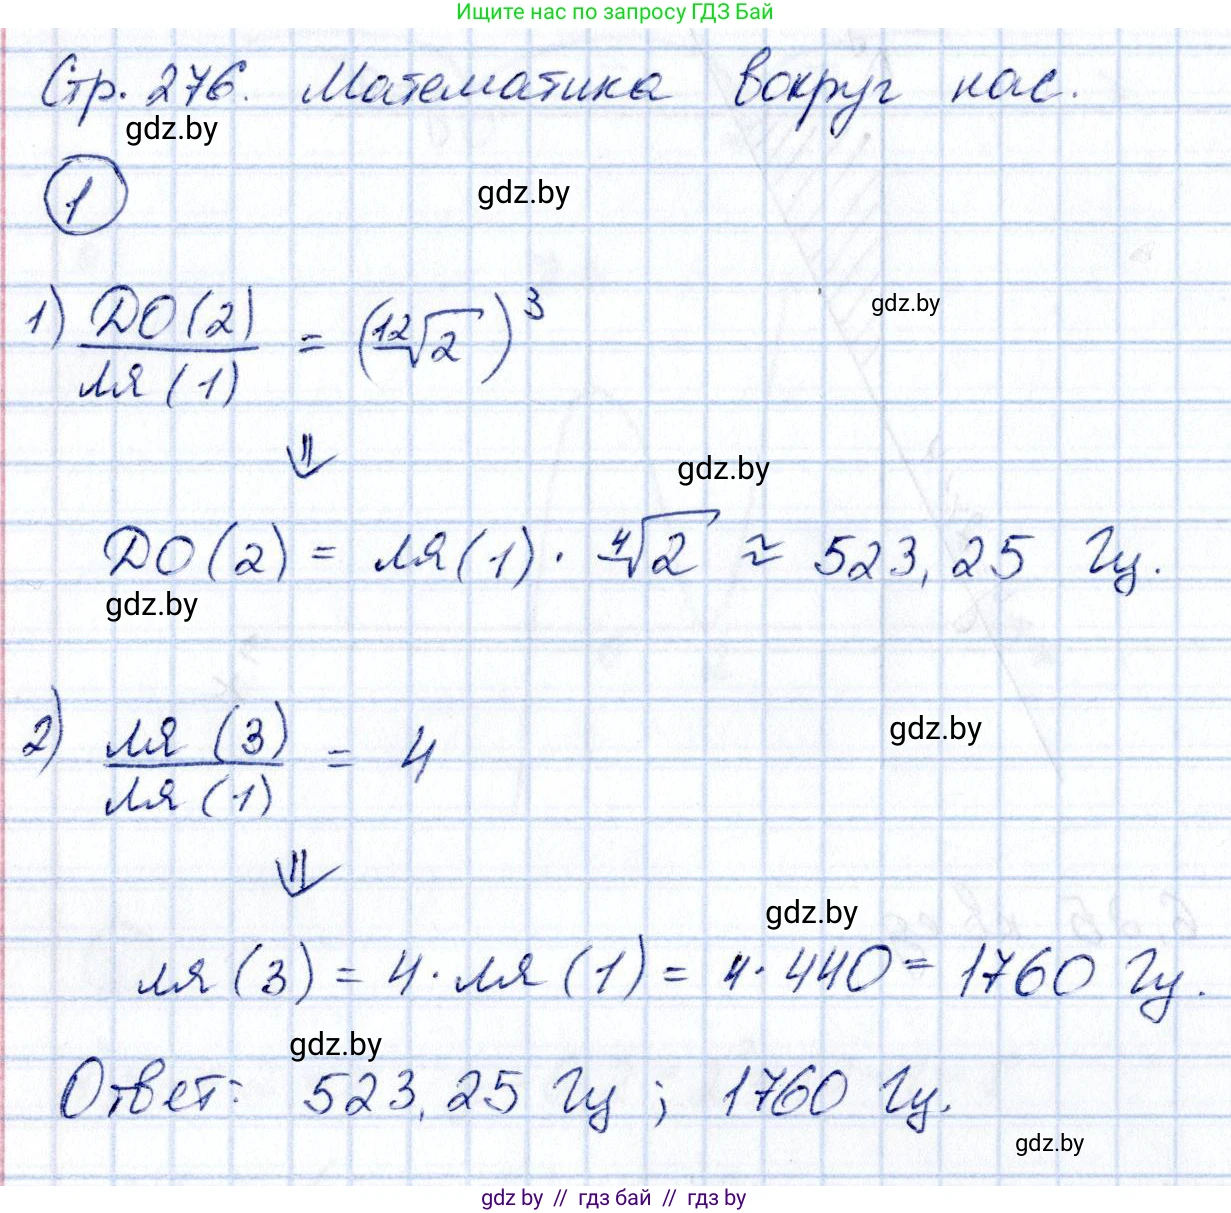 Ищите нас по запросу ГДЗ Бай
Стр. 276. Математика вокруг нас.
gdz.by
1
gdz.by
1) ДО(2)/ЛЯ(1) = (¹²√2)³
gdz.by
⇓
gdz.by
ДО(2) = ЛЯ(1) · ⁴√2 ≈ 523,25 Гц.
gdz.by
2) ЛЯ(3)/ЛЯ(1) = 4
gdz.by
⇓
gdz.by
ЛЯ(3) = 4 · ЛЯ(1) = 4 · 440 = 1760 Гц.
gdz.by
Ответ: 523,25 Гц; 1760 Гц.
gdz.by
gdz by // гдз бай // гдз by